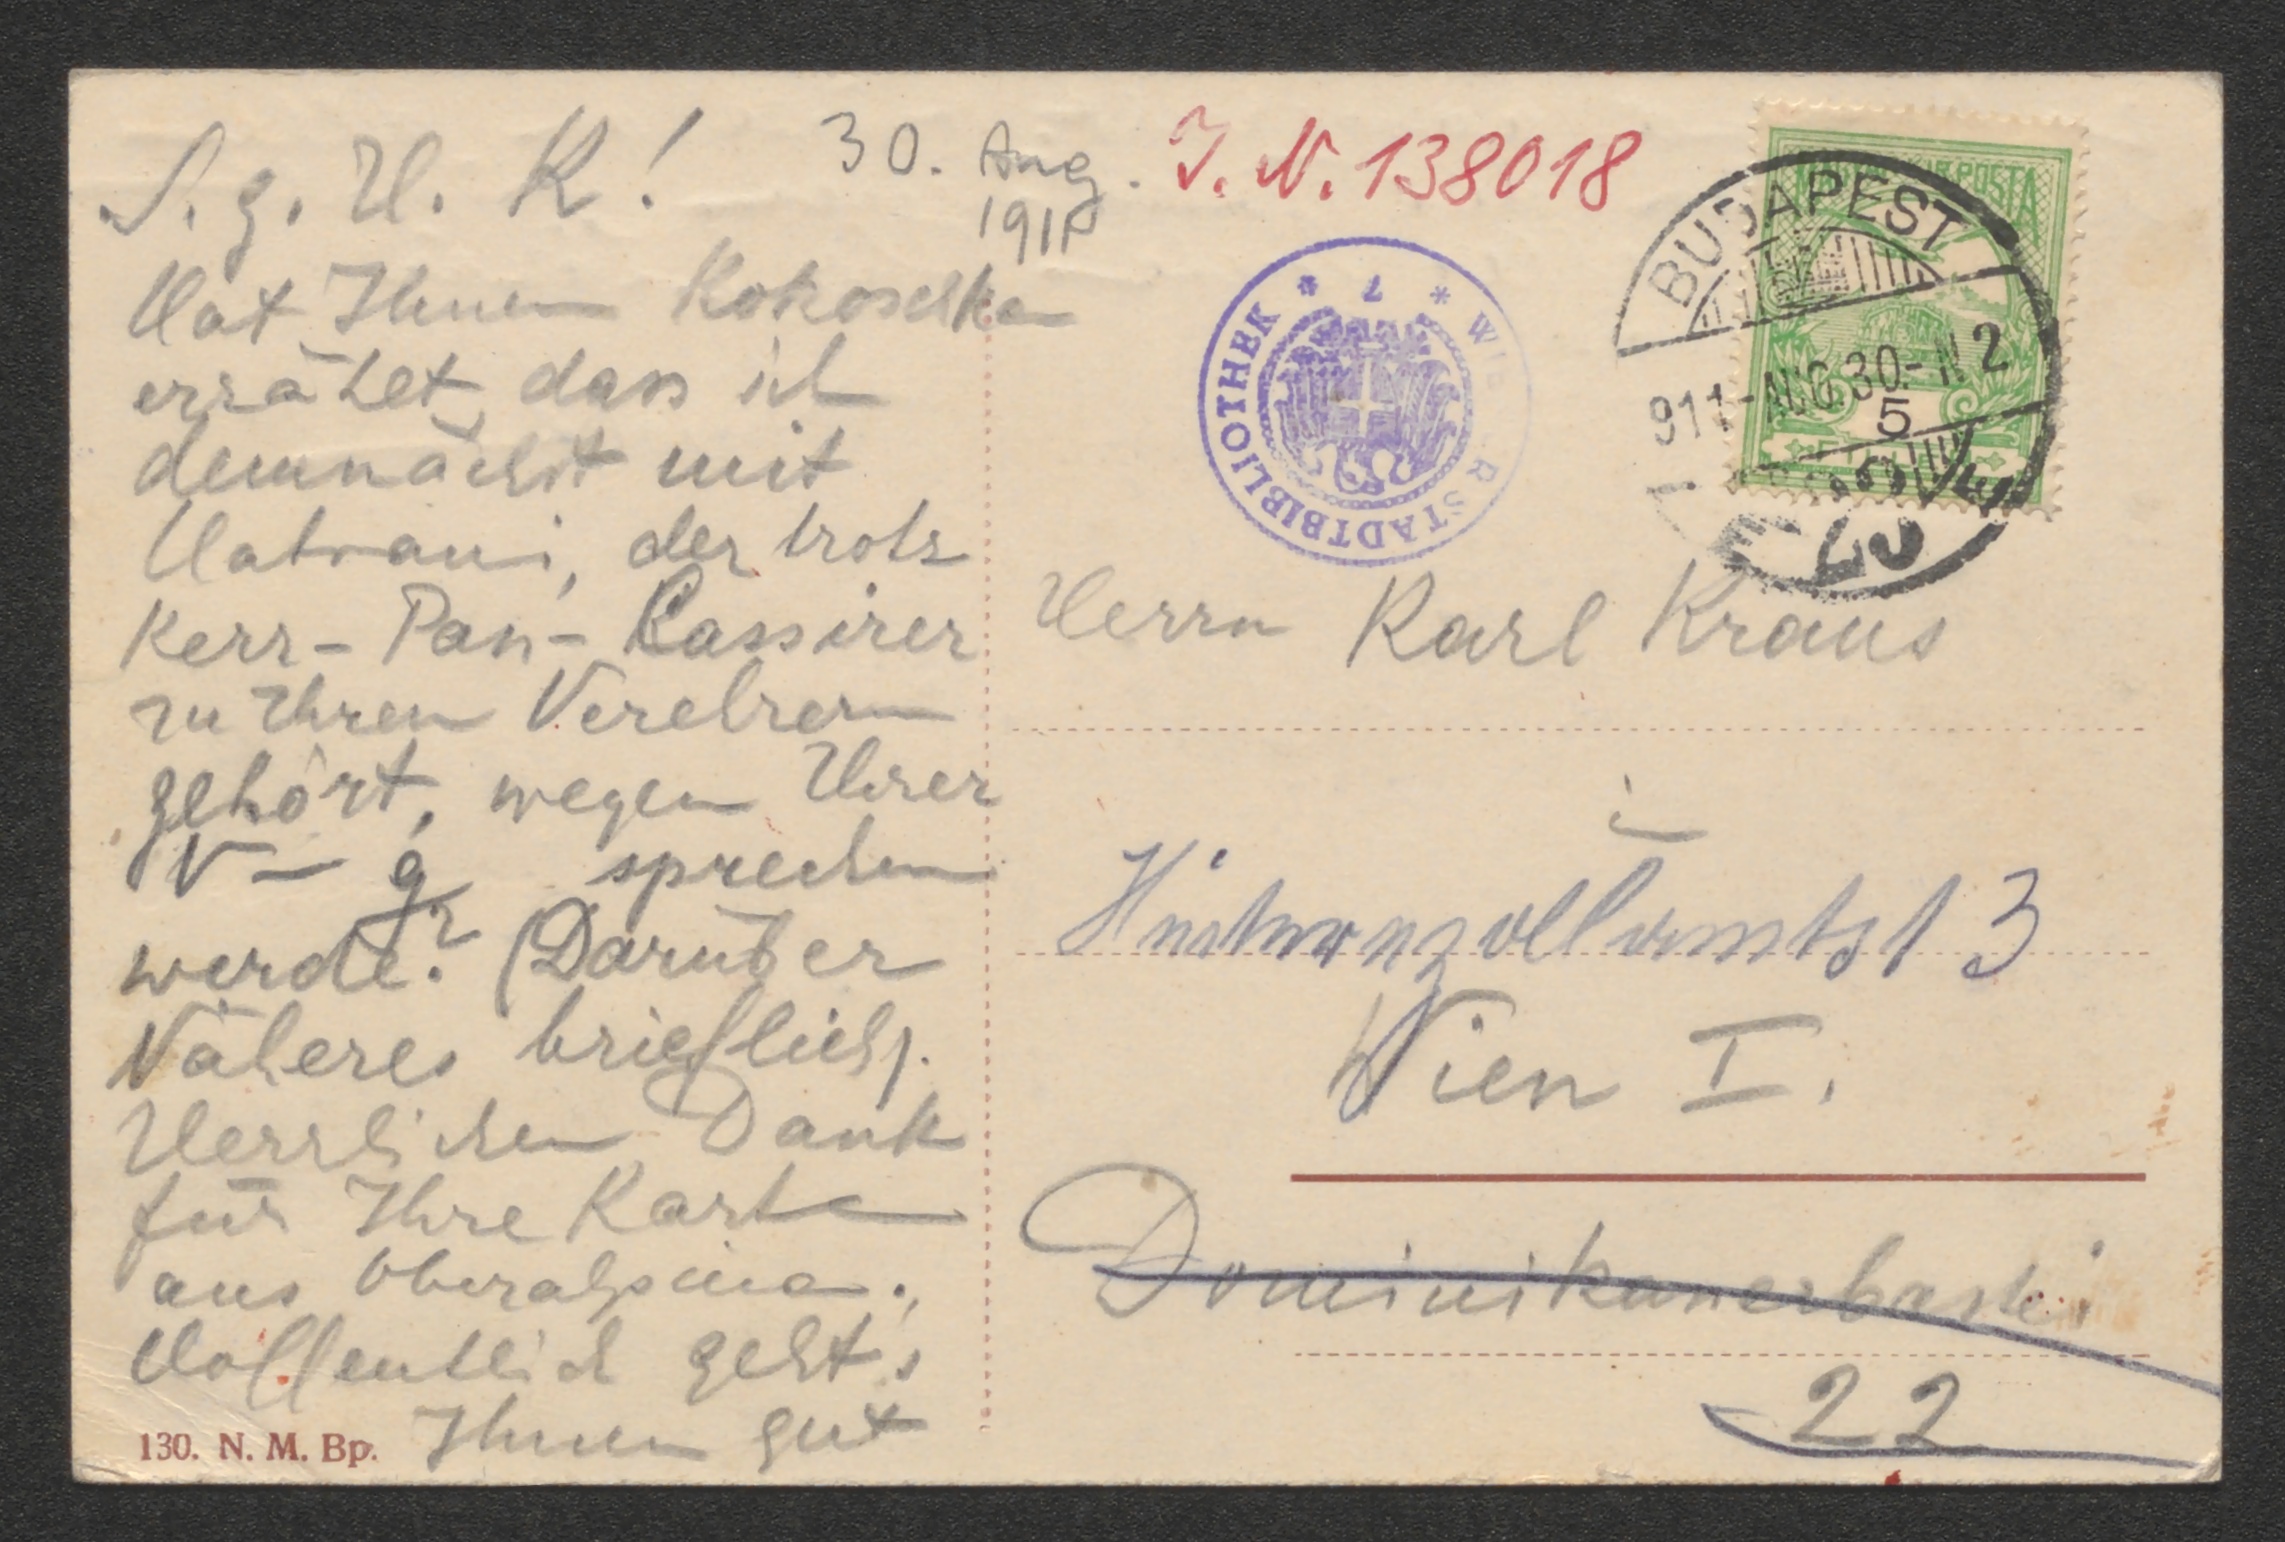 S. g. H. K!
30. Aug.
1911
I. N. 138018
Hat Ihnen Kokoschka
erzählt, dass ich
demnächst mit
Hatvani, der trotz
Kerr-Pan-Cassirer
zu Ihren Verehrern
gehört, wegen Ihrer
V–g sprechen
werde? (Darüber
Näheres brieflich).
Herzlichen Dank
für Ihre Karte
aus Oberalpina.
Hoffentlich geht's
Ihnen gut
130. N. M. Bp.
MAGYAR KIR. POSTA
BUDAPEST
911 - AUG. 30. - N 2
5
WIENER STADTBIBLIOTHEK
* 7 *
Herrn Karl Kraus
in
Hinterezollamtsst 3
Wien I.
Dominikanerbastei
22